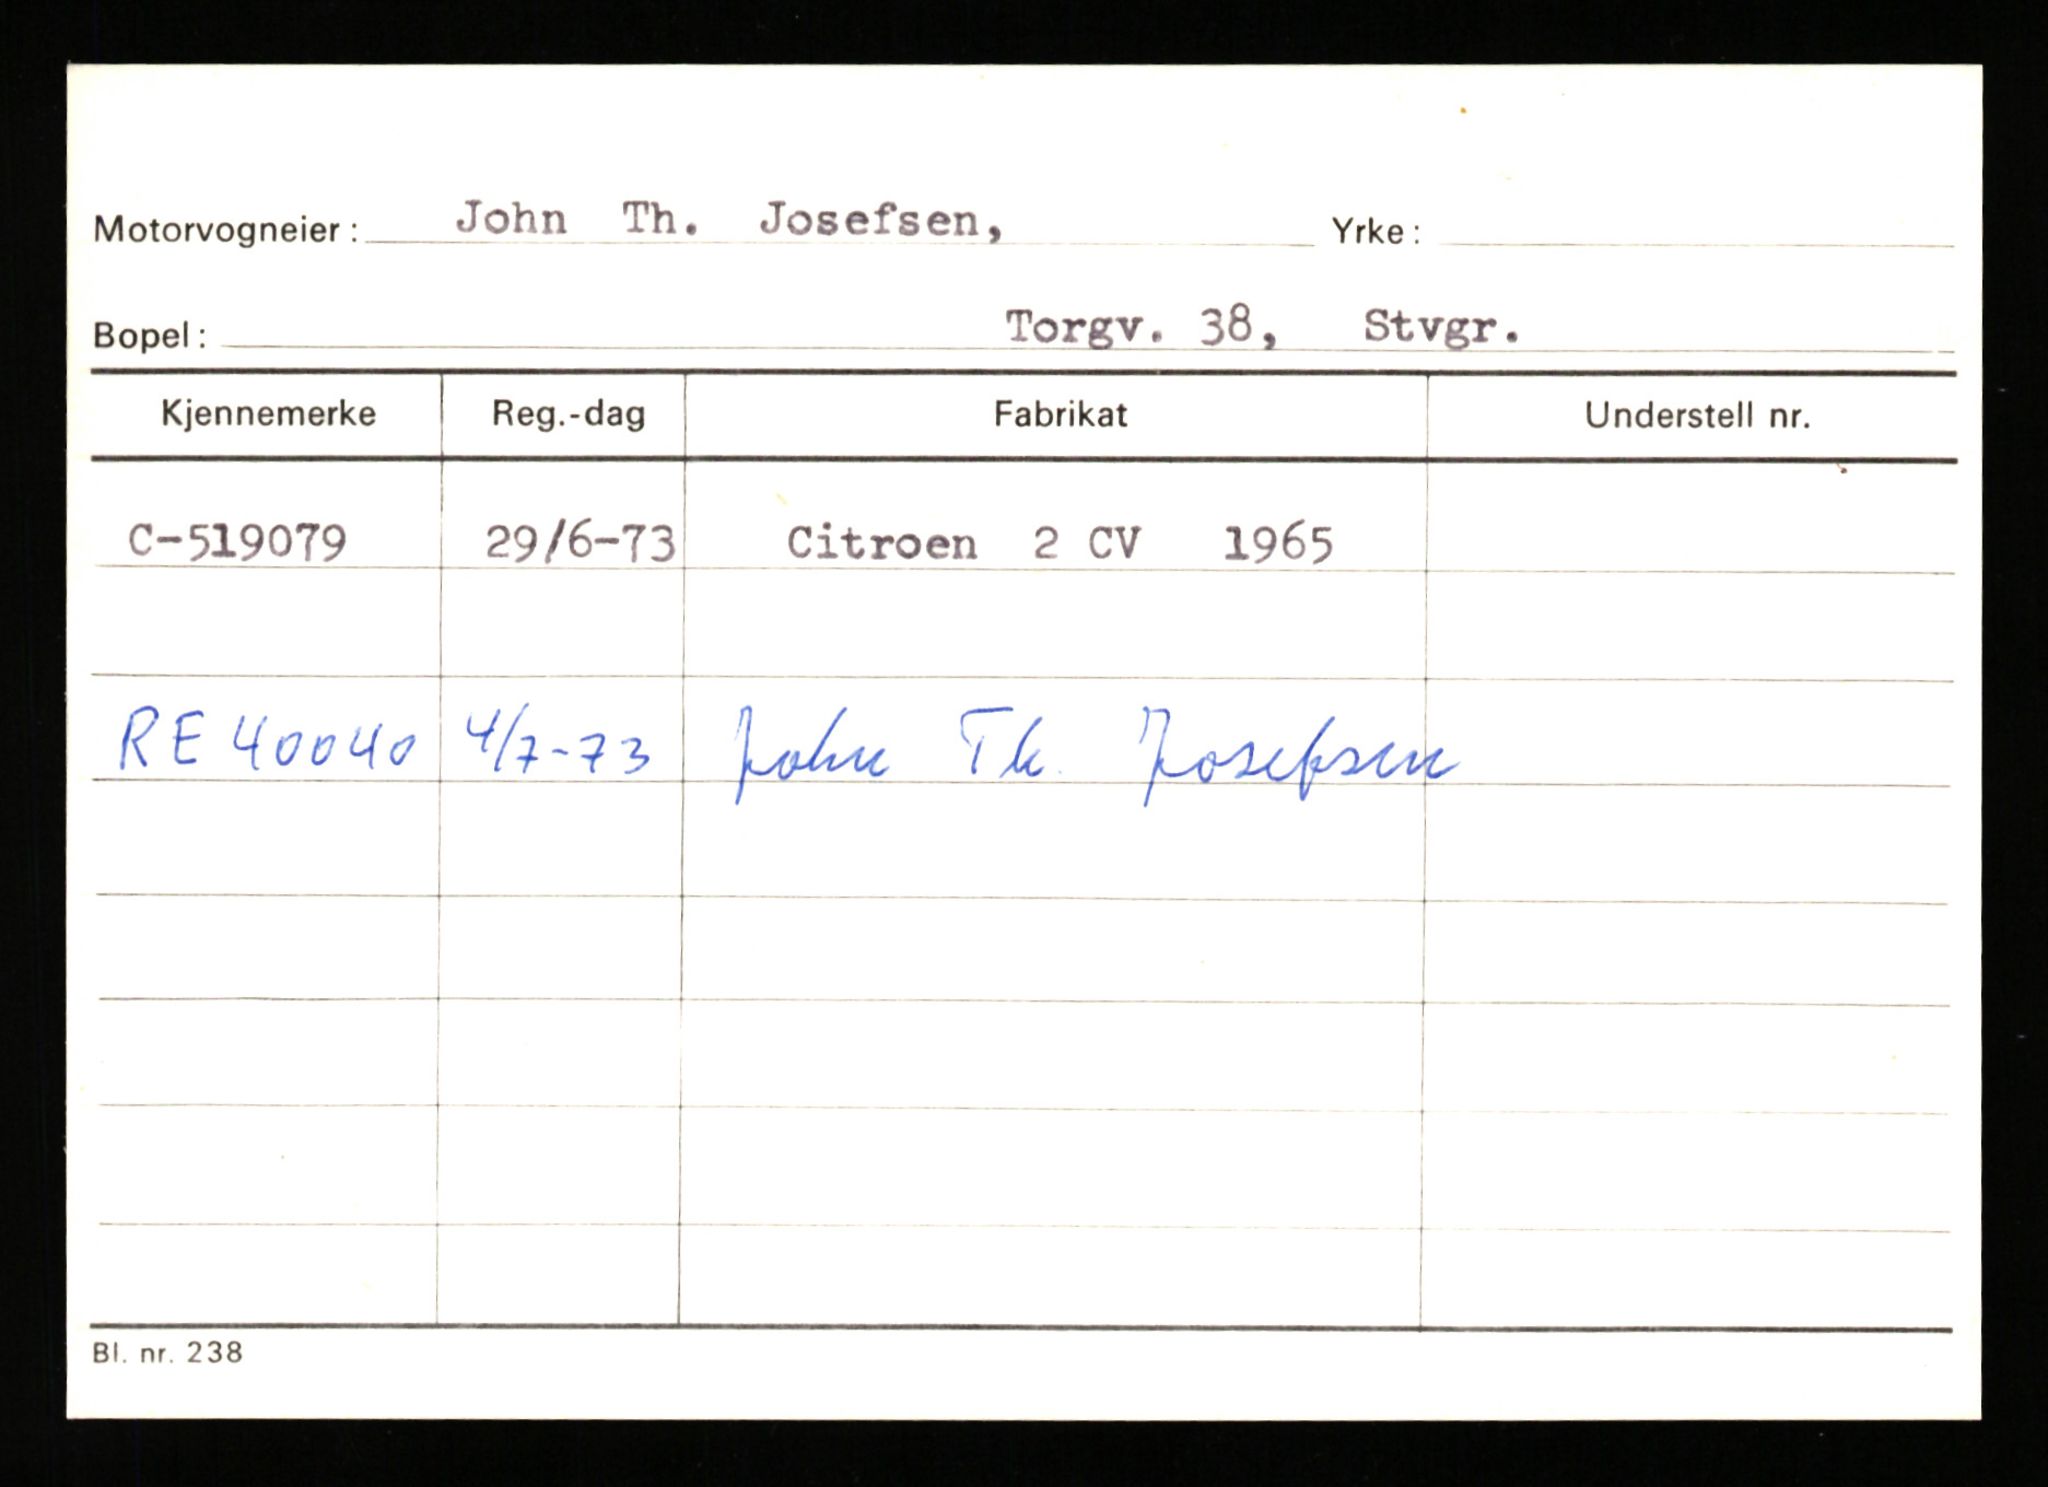 Motorvogneier: John Th. Josefsen, Yrke:
Bopel: Torgv. 38, Stvgr.
Kjennemerke Reg.-dag Fabrikat Understell nr.
C-519079 29/6-73 Citroen 2 CV 1965
RE 40040 4/7-73 John Th. Josefsen
Bl. nr. 238